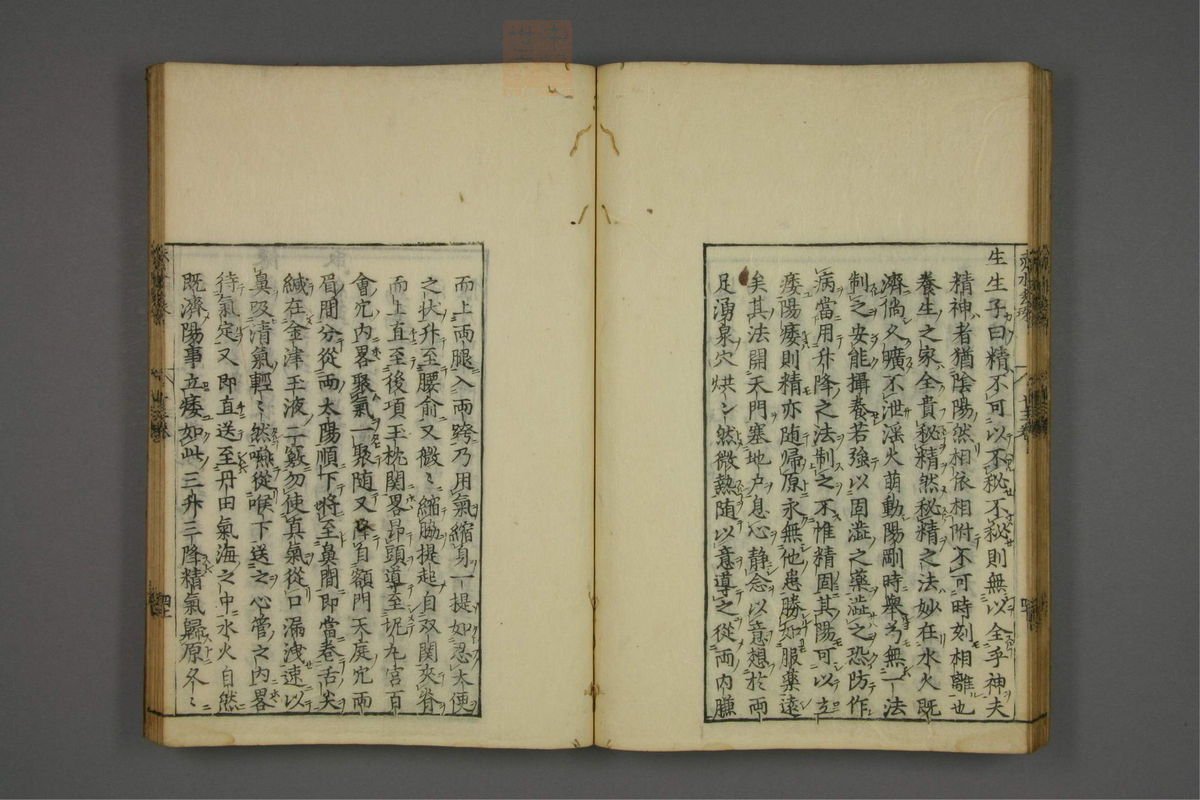 生生子曰精不可以不秘不秘則無以全乎神夫
精神者猶陰陽然相依相附不可時刻相離也
養生之家全貴秘精然秘精之法妙在水火既
濟倘久曠不泄淫火萌動陽剛時舉若無一法
制之安能攝養若強以固澁之藥澁之恐防作
病當用升降之法制之不惟精固其陽可以立
痿陽痿則精亦随歸原永無他患勝如服藥遠
矣其法開天門塞地户息心静念以意想於両
足湧泉穴烘〻然微熱随以意導之從両内臁
而上両腿入両跨乃用氣縮身一提如忍大便
之状升至腰俞又微〻縮脇提起自双関夾脊
而上直至後項玉枕関畧昻頭導至坭丸宮百
會穴内畧聚氣一聚随又降自額門天庭穴両
眉間分從両太陽順下將至鼻間即當巻舌尖
緘在金津玉液二竅勿使真氣從口漏洩速以
鼻吸清氣輕〻然嚥從喉下送之心管之内畧
待氣定又即直送至丹田氣海之中水火自然
既濟陽事立痿如此三升三降精氣歸原久〻